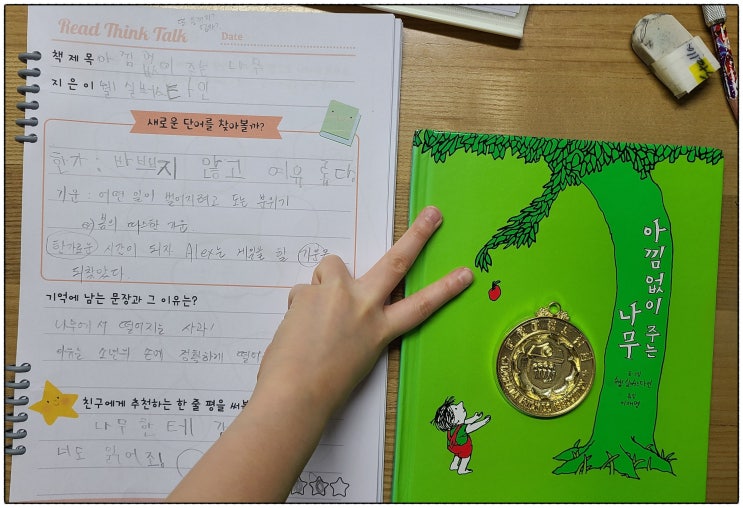 Read Think Talk
Date
책 제목 아낌없이 주는 나무
지은이 쉘 실버스타인
새로운 단어를 찾아볼까?
한가 : 바쁘지 않고 여유롭다
기운 : 어떤 일이 벌어지려고 도는 분위기
예) 봄의 따뜻한 기운
한가로운 시간이 되자 Alex는 게임을 할 기운을
되찾았다.
기억에 남는 문장과 그 이유는?
나무에서 떨어지는 사과!
이유는 소년의 손에 정확하게 떨어
친구에게 추천하는 한 줄 평을 써
나무한테
너도 읽어죠!
아낌없이 주는
나무